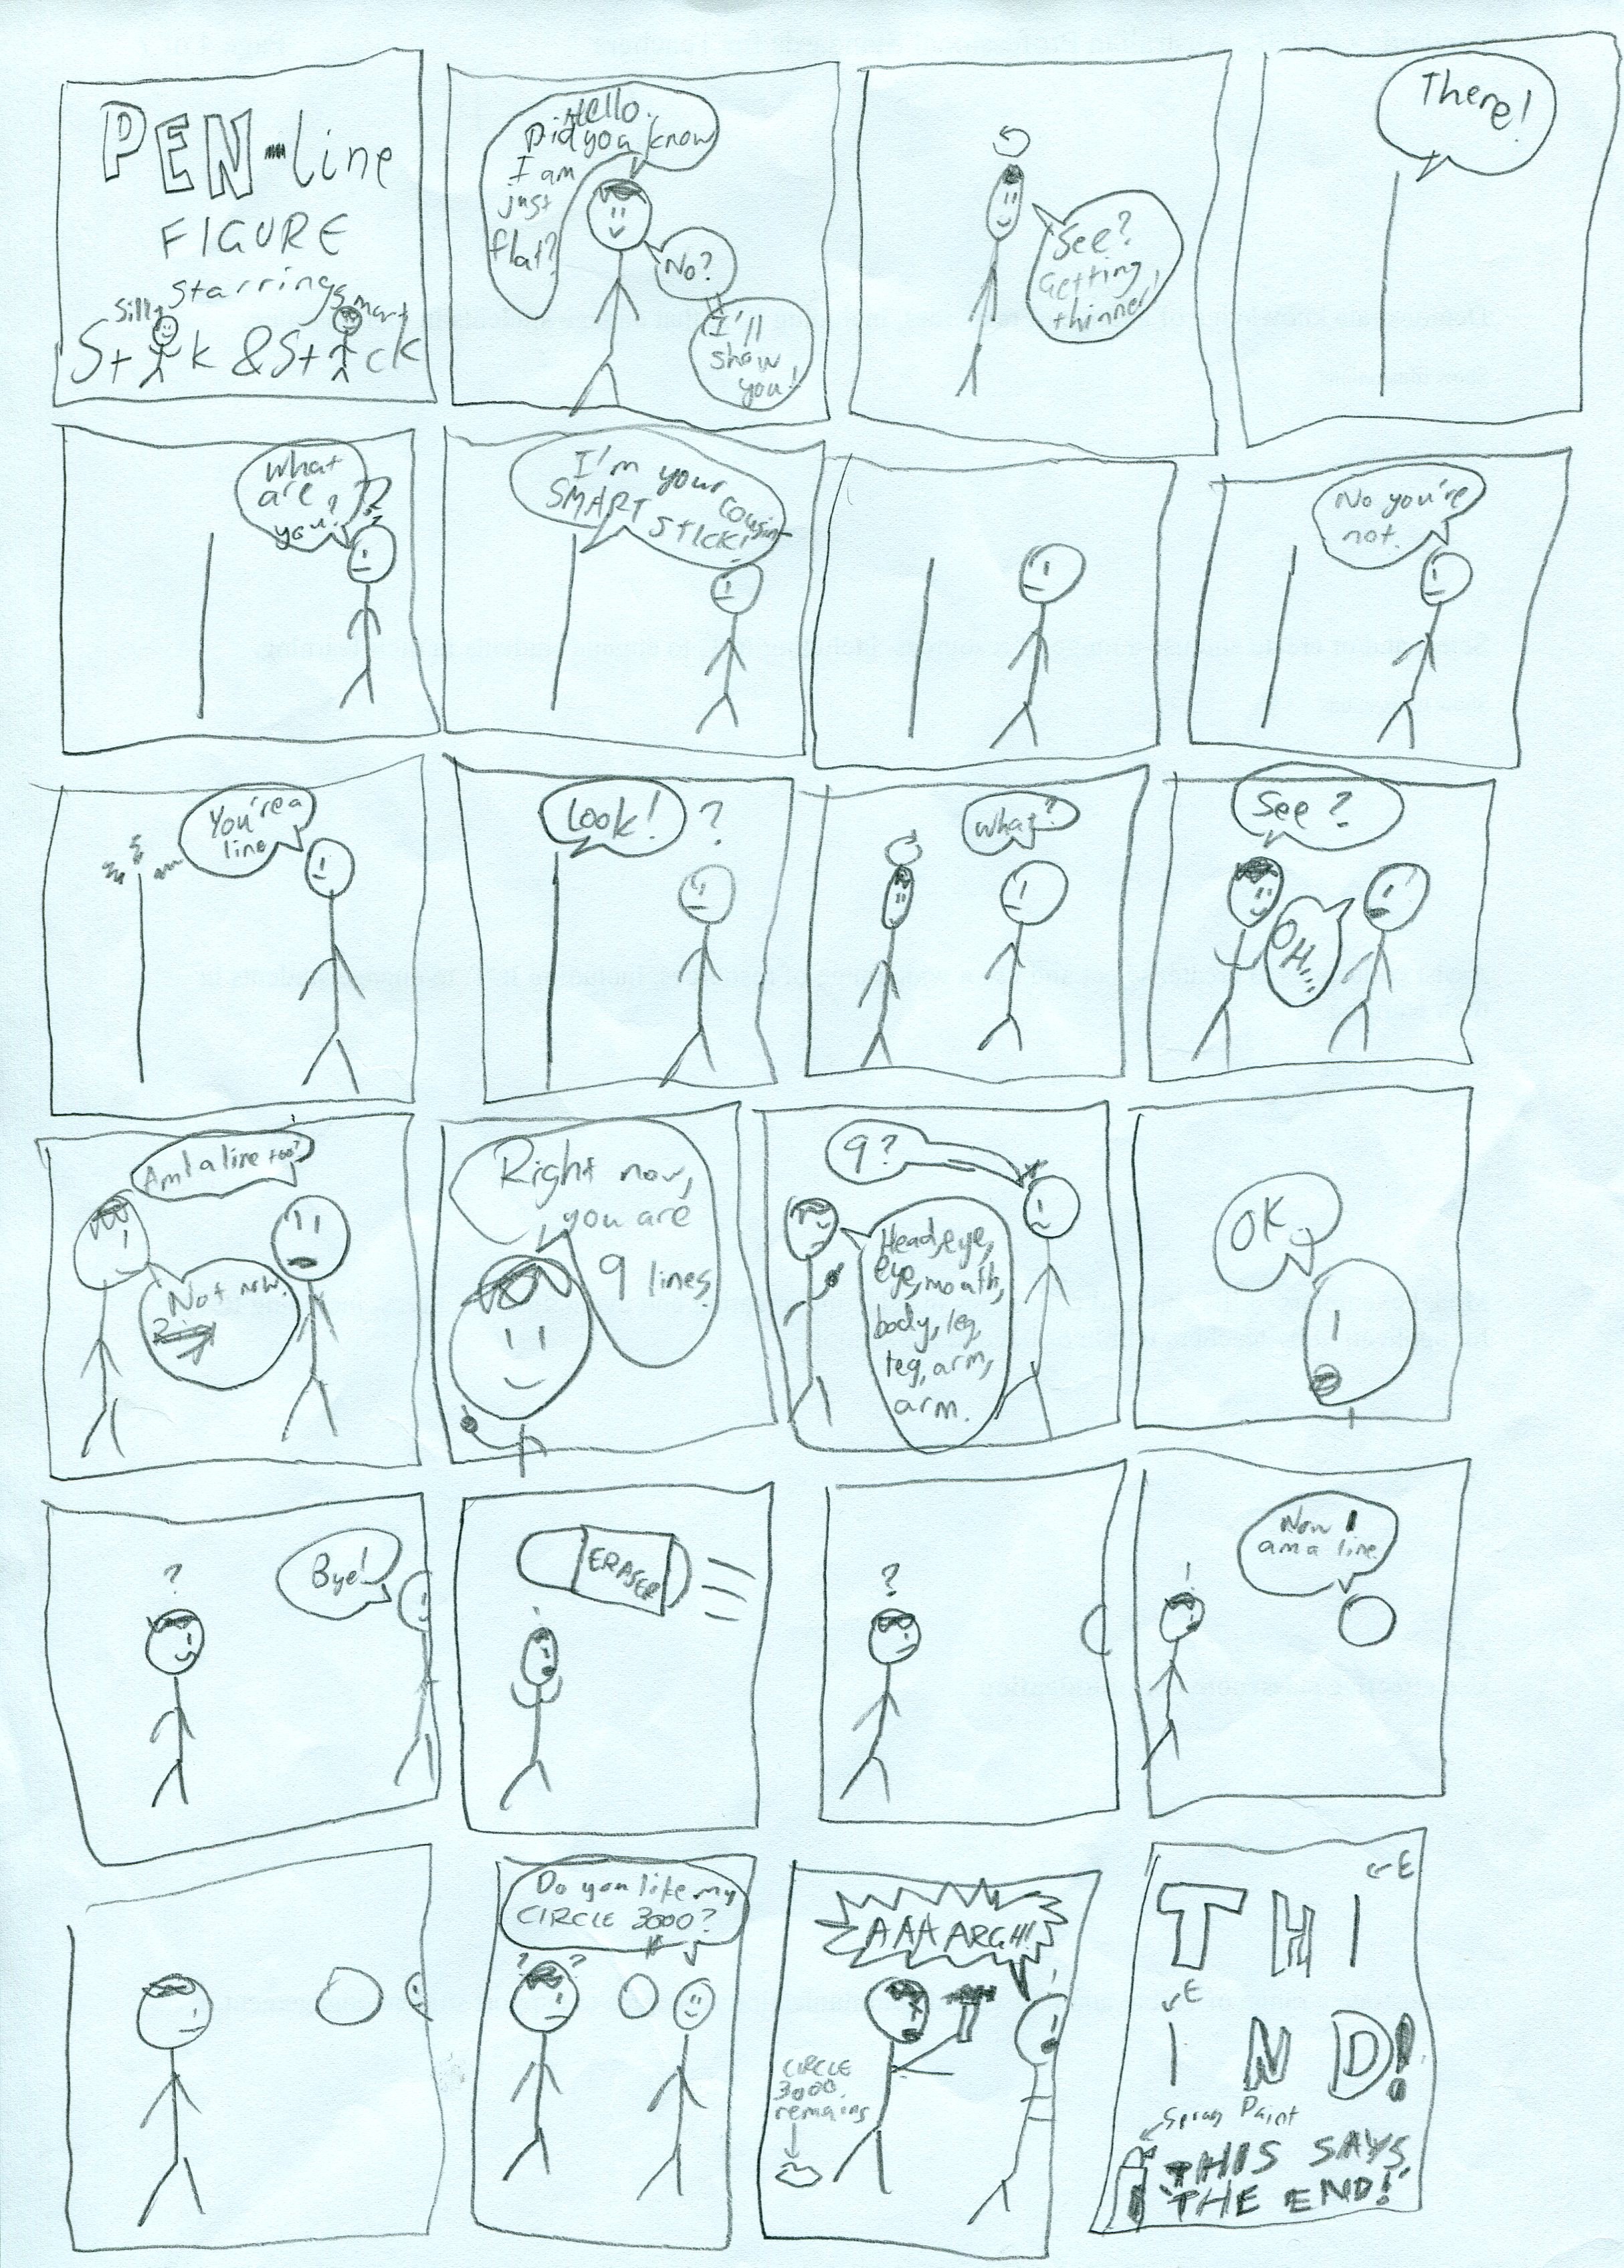 PEN-line
FIGURE
starring
Silly Smart
Stick & Stick
Hello.
Did you know
I am
just
flat?
No?
I'll
show
you!
See?
Getting
thinner!
There!
What
are
you?
??
I'm your cousin
SMART STICK!
No you're
not.
You're a
line
Look!
?
What?
See?
OH...
Am I a line too?
Not now.
Right now,
you are
9 lines.
9?
Head, eye,
eye, mouth,
body, leg,
leg, arm,
arm.
OK.
?
Bye!
ERASER
?
!
Now I
am a line
Do you like my
CIRCLE 3000?
? ?
AAAARGH!
CIRCLE
3000
remains
←E
THI
E
IND!
Spray Paint
THIS SAYS
"THE END!"